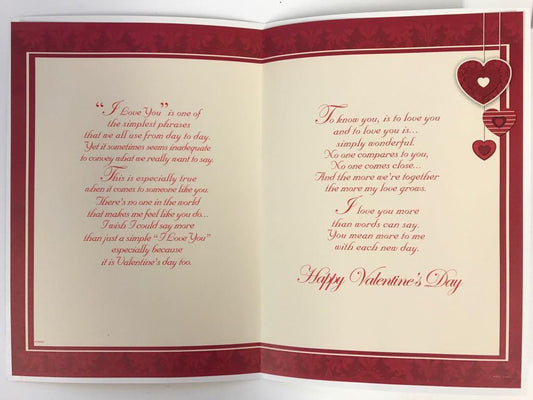 "I Love You" is one of
the simplest phrases
that we all use from day to day.
Yet it sometimes seems inadequate
to convey what we really want to say.
This is especially true
when it comes to someone like you.
There's no one in the world
that makes me feel like you do...
I wish I could say more
than just a simple "I Love You"
especially because
it is Valentine's day too.
To know you, is to love you
and to love you is...
simply wonderful.
No one compares to you,
No one comes close...
And the more we're together
the more my love grows.
I love you more
than words can say.
You mean more to me
with each new day.
Happy Valentine's Day